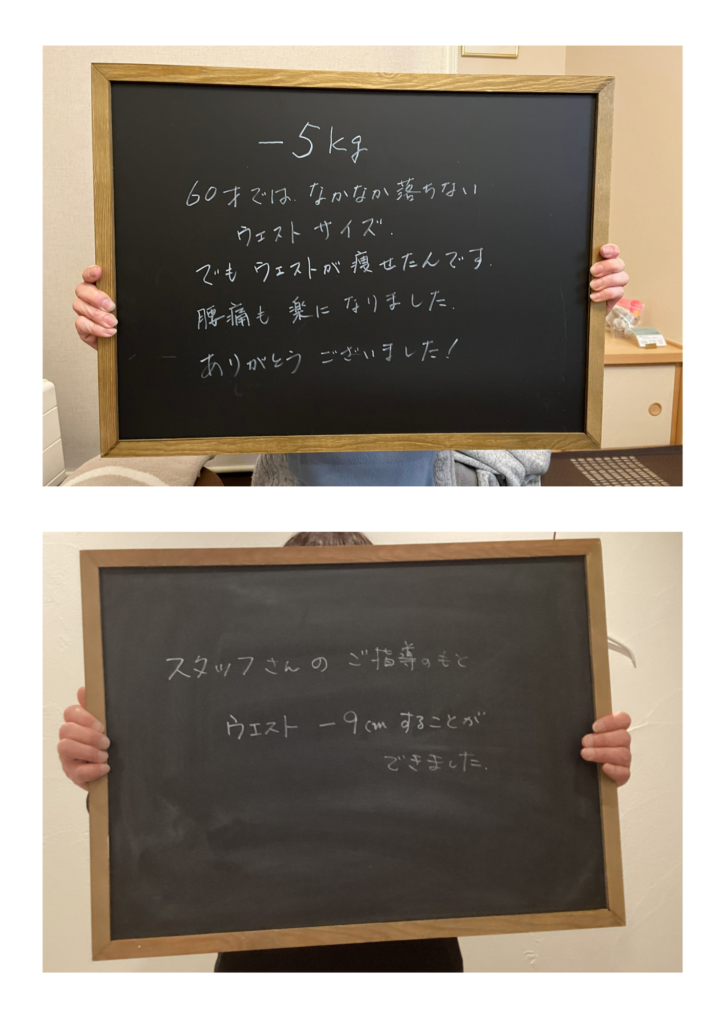 -5kg
60才では、なかなか落ちない
ウェストサイズ.
でもウェストが痩せたんです.
腰痛も楽になりました.
ありがとうございました!
スタッフさんのご指導のもと
ウエスト -9cmすることが
できました.